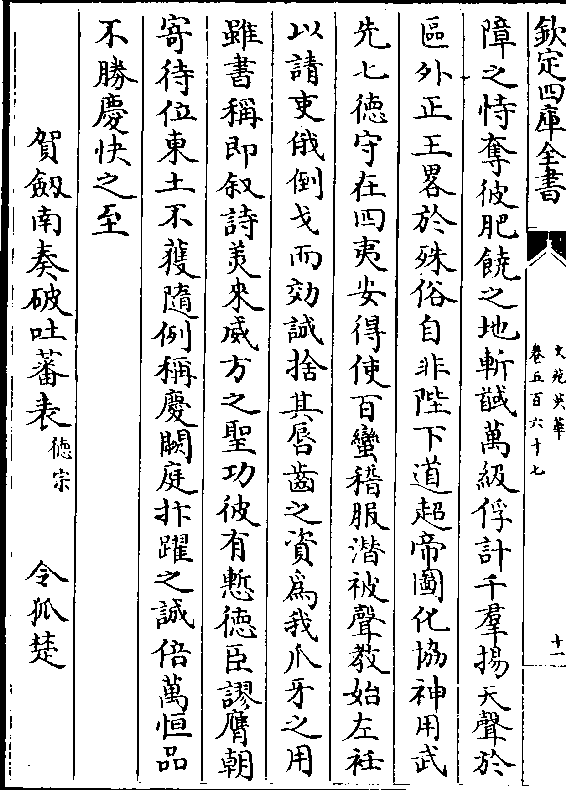 欽定四庫全書
文苑英華
卷五百六十七
十一
障之恃奪彼肥饒之地斬馘萬級俘計千羣揚天聲於
區外正王畧於殊俗自非陛下道超帝圖化協神用武
先七德守在四夷安得使百蠻稽服潛被聲教始左袵
以請吏俄倒戈而効誠捨其唇齒之資為我爪牙之用
雖書稱即叙詩美來威方之聖功彼有慙德臣謬膺朝
寄待位東土不獲隨例稱慶闕庭抃躍之誠倍萬恒品
不勝慶快之至
賀劔南奏破吐蕃表德宗　令狐楚